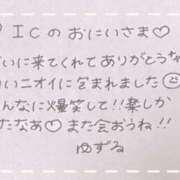 ICのおにいさま♡
いに来てくれてありがとう
いニオイに包まれました
んなに爆笑して!!楽しか
たなあ♡また会おうね!!
ゆずる